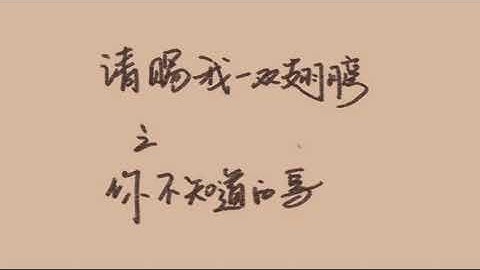 请赐我一双翅膀
之
你不知道的事